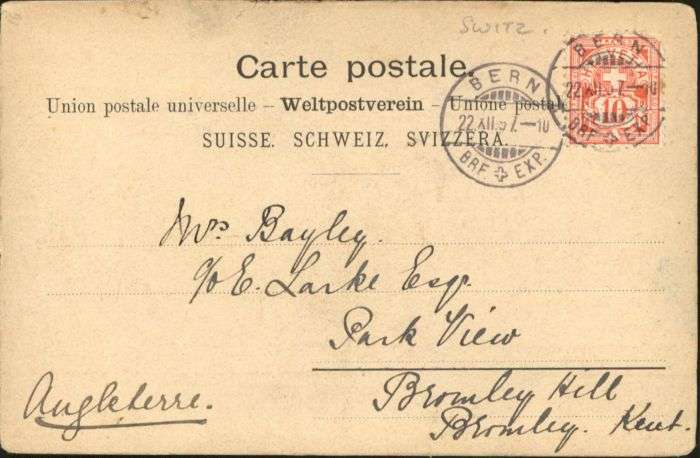 SWITZ.
Carte postale.
Union postale universelle – Weltpostverein – Unione postale
SUISSE. SCHWEIZ. SVIZZERA.
BERN
22 XII 97.–10
BRF EXP.
BERN
10
BRF EXP.
Mrs Bayley.
c/o E. Larke Esq.
Park View
Bromley Hill
Bromley. Kent.
Angleterre.